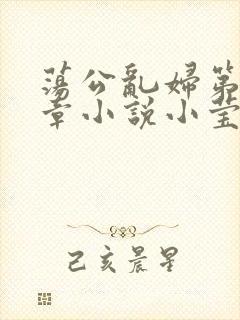 蕩公亂婦第
章小說小莹
己亥晨星